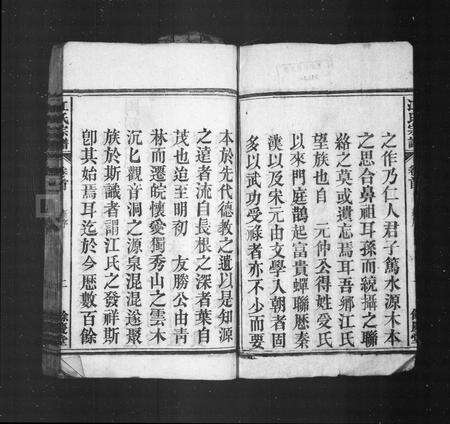 之作乃仁人君子篤水源木本
之思合鼻祖耳孫而統攝之聯
絡之莫或遺忘焉耳吾鄉江氏
望族也自 元仲公得姓受氏
以來門庭鵲起富貴蟬聯歷秦
漢以及宋元由文學入朝者固
多以武功受祿者亦不少而要
江氏宗譜
卷首
二
餘慶堂
本於先代德教之遺以是知源
之遠者流自長根之深者葉自
茂也迨至明初 友勝公由青
林而遷皖懷愛獨秀山之雲木
沉匕觀音洞之源泉混混遂聚
族於斯識者謂江氏之發祥斯
卽其始焉耳迄於今歷數百餘